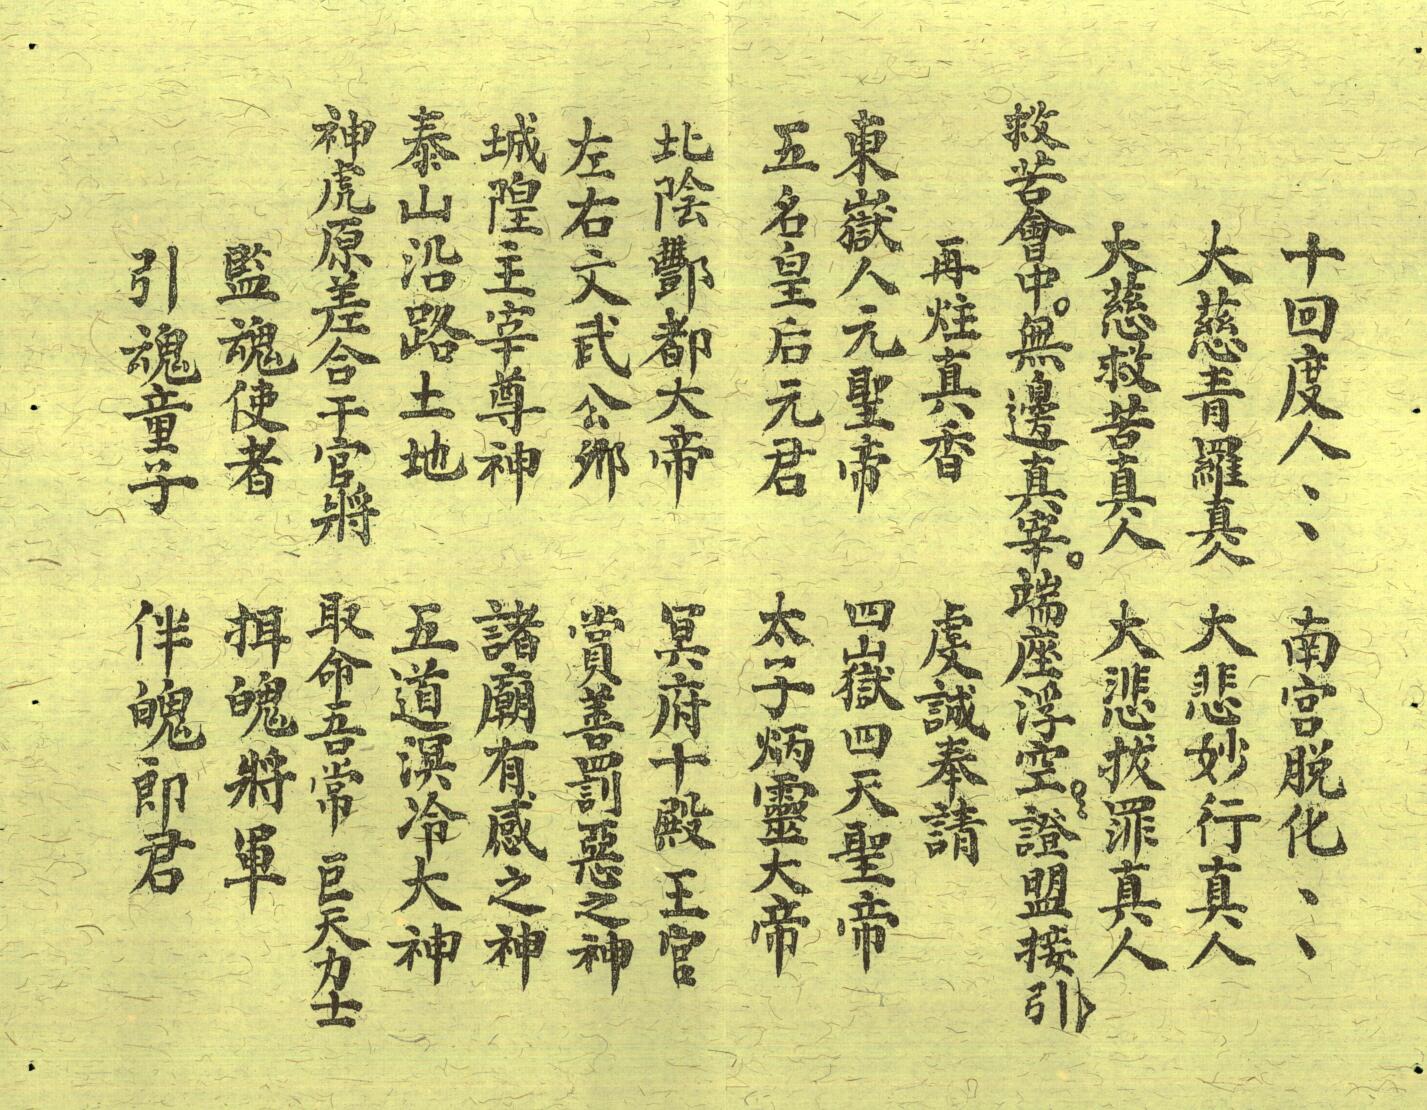 十回度人、、　南宮脱化、、
大慈青羅真人　大悲妙行真人
大慈救苦真人　大悲拔罪真人
救苦會中。無邊真宰。端座浮空。證盟接引
再炷真香　虔誠奉請
東嶽人元聖帝　四山嶽四天聖帝
五名皇后元君　太子炳靈大帝
北陰酆都大帝　冥府十殿王官
左右文武公卿　賞善罰惡之神
城隍主宰尊神　諸廟有感之神
泰山沿路土地　五道溟冷大神
神虎原差合干官將　取命吾常　巨天力士
監魂使者　揖魄將軍
引魂童子　伴魄郎君